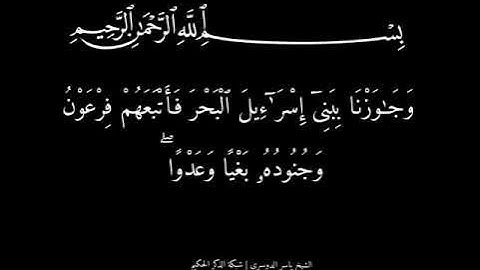 بِسْمِ اللَّهِ الرَّحْمَٰنِ الرَّحِيمِ
وَجَٰوَزْنَا بِبَنِىٓ إِسْرَٰٓءِيلَ ٱلْبَحْرَ فَأَتْبَعَهُمْ فِرْعَوْنُ
وَجُنُودُهُۥ بَغْيًا وَعَدْوًا ۖ
الشيخ ياسر الدوسري | شبكة الذكر الحكيم